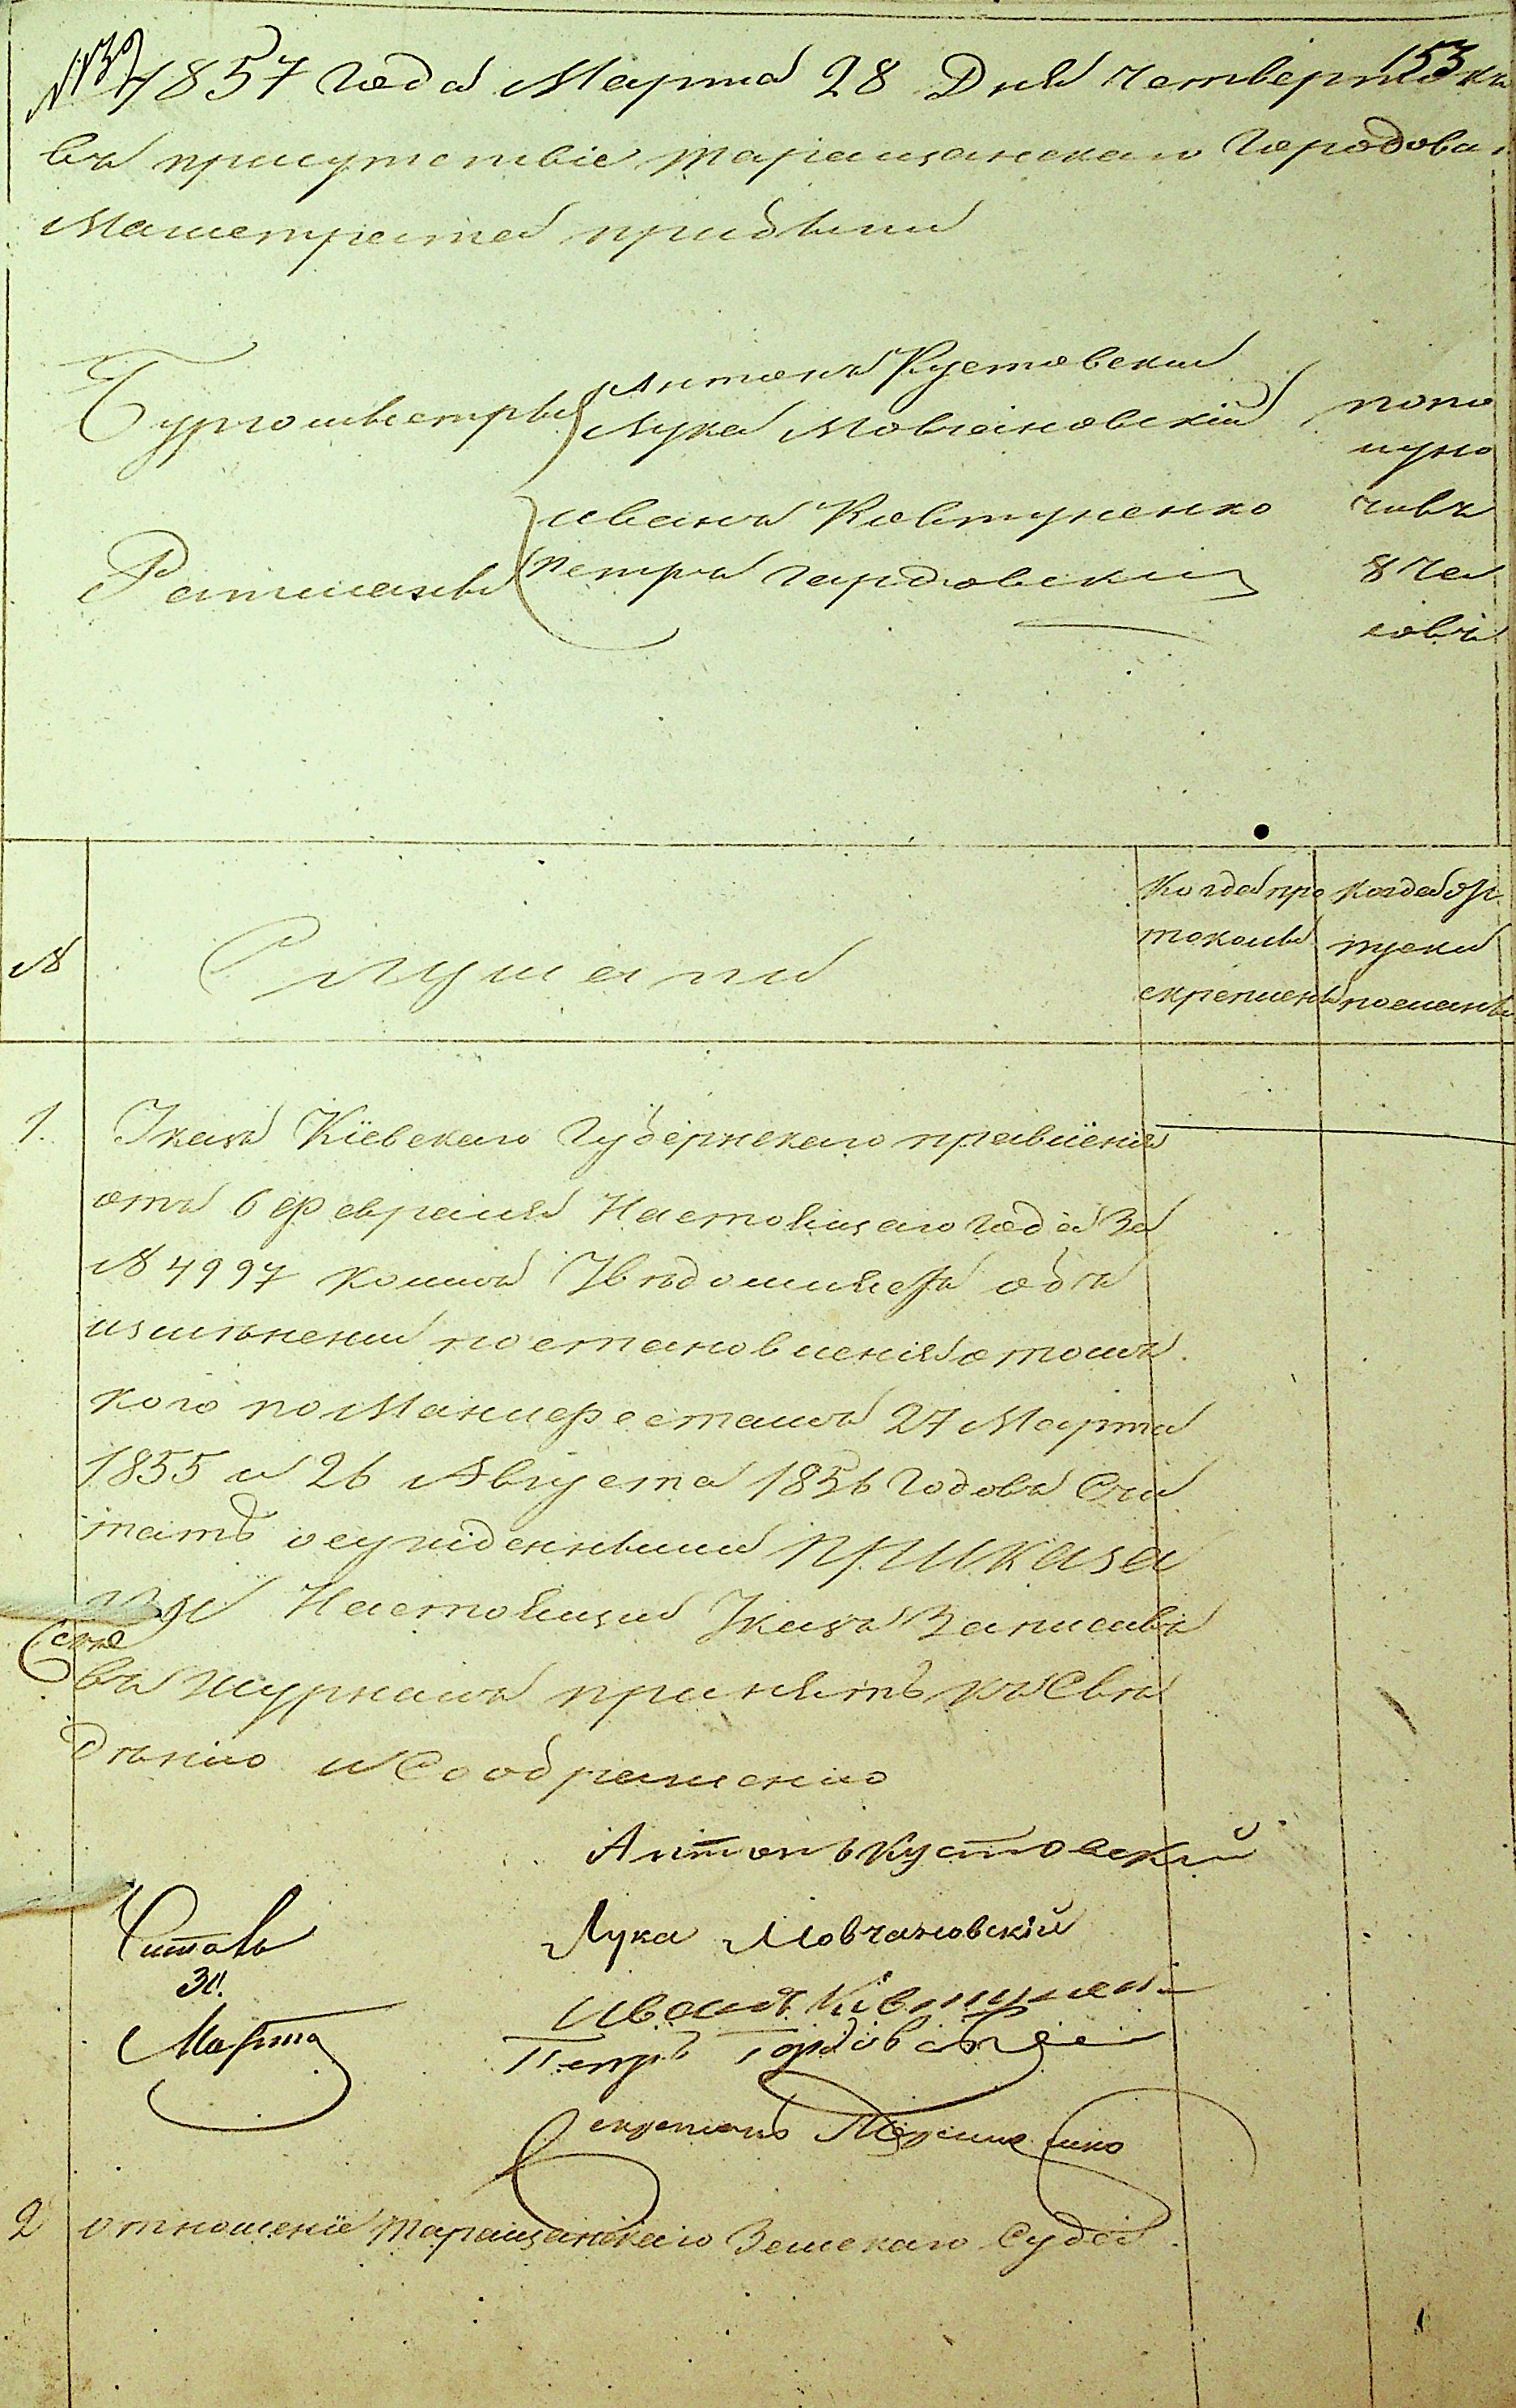 153
1857 года Марта 28 Дня Четвертокъ
въ присутствіе таращанскаго Городова
Магистрата прибыли
Бургомистры
Антонъ Кустовскій
Лука Мовчановскій
Ратманы
иванъ Ковтуненко
Петръ гардовскій
попо
луно
чивъ
8 ча
совъ
№
Слушали
Когда про
токолы
скреплены
когда бу
маги
посланы
1. Указъ Кіевскаго Губернскаго правленія
отъ 6 февраля Настоящаго года За
№ 4997 коимъ Увѣдомляетъ объ
измѣнении постановленія о томъ
кого по Манифестамъ 27 Марта
1855 и 26 Августа 1856 Годовъ Счи
тать осужденными приказа
ли Настоящий Указъ Записавъ
въ журналъ принять къ Свѣ
дѣнию и Соображению
Антонъ Кустовский
Лука Мовчановскій
Иванъ Ковтунен
Петръ Гордовский
Читалъ
30.
Марта
Секретарь
2 отношеніе таращанскаго Земскаго Суда